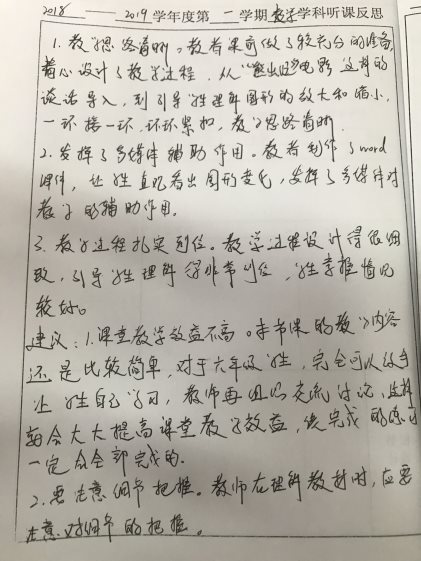 2018 — 2019 学年度第 一 学期 数学 学科听课反思
1. 教学思路清晰。教者课前做了较充分的准备，
精心设计了教学过程，从“熊出没”电影这样的
谈话导入，到引导学生理解图形的放大和缩小，
一环接一环，环环紧扣，教学思路清晰。
2. 发挥了多媒体辅助作用。教者制作了word
课件，让学生直观看出图形变化，发挥了多媒体对
教学的辅助作用。
3. 教学过程扎实到位。教学过程设计得很细
致，引导学生理解得非常到位，学生掌握情况
较好。
建议：1. 课堂教学效益不高。本节课的教学内容
还是比较简单，对于六年级学生，完全可以放手
让学生自己学习，教师再组织交流讨论，这样
会大大提高课堂教学效益，使完成的练习
一定会全部完成的.
2. 要注意细节把握。教师在理解教材时，应要
注意对细节的把握。